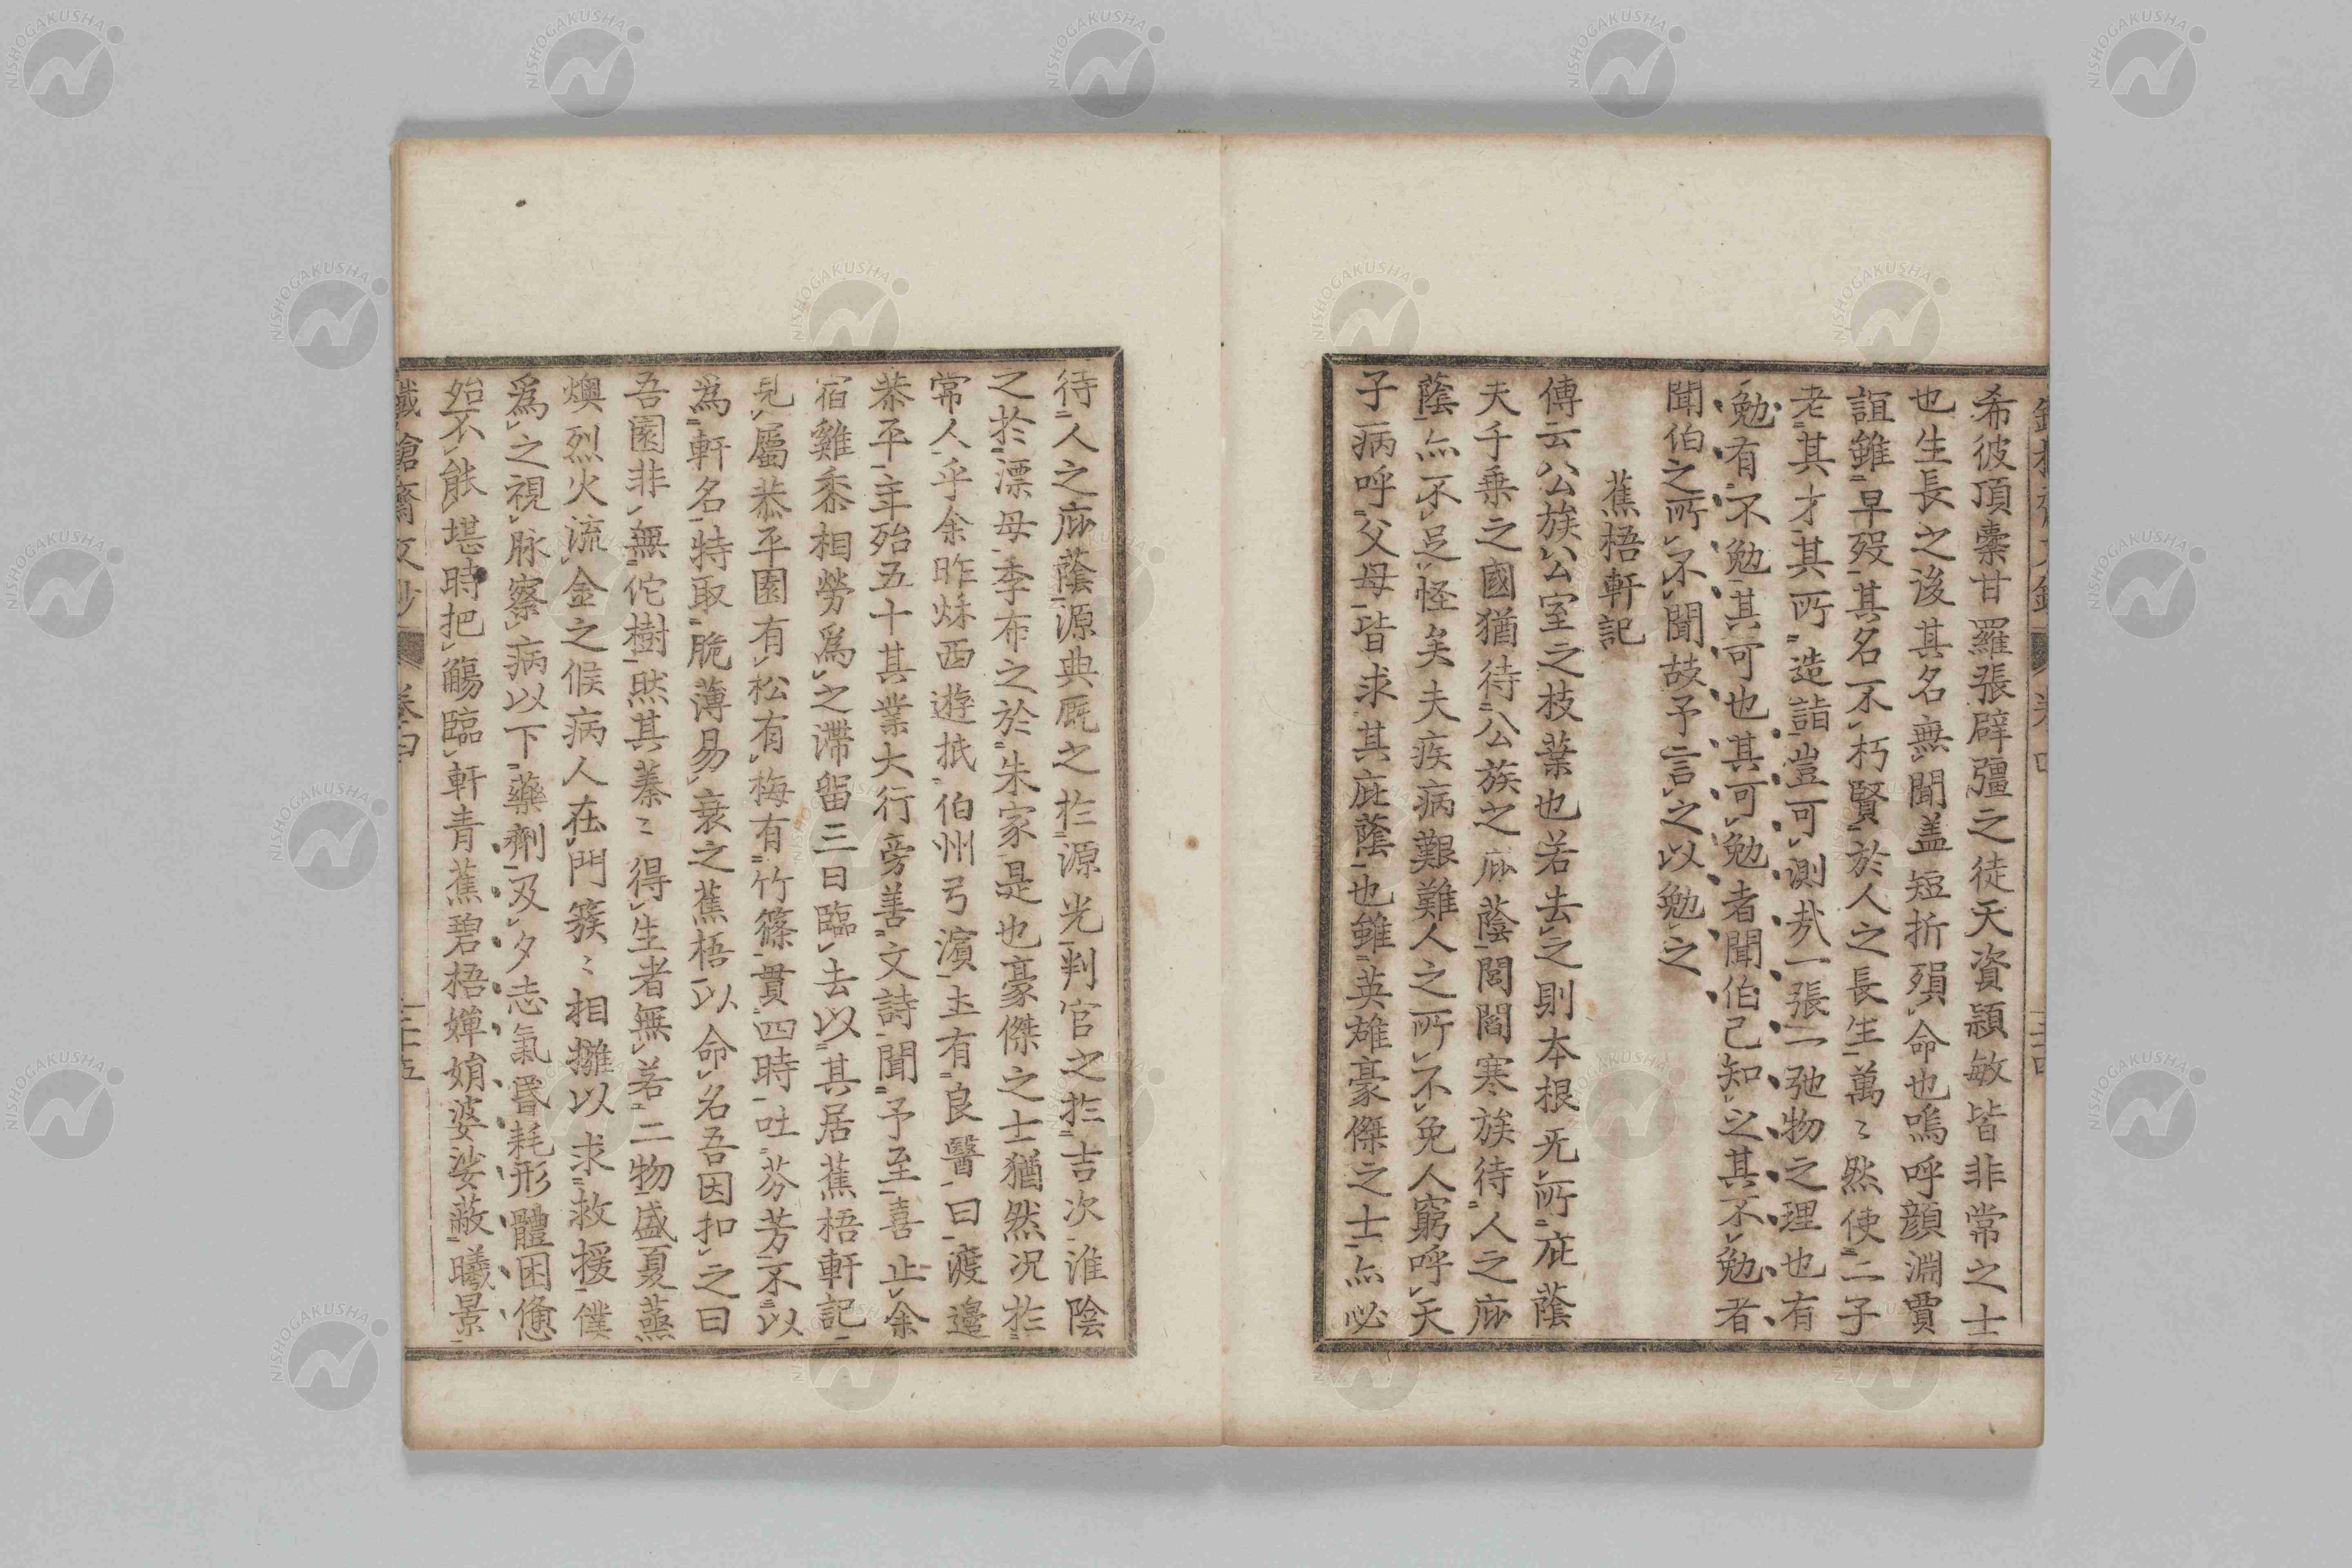 希彼頂橐甘羅張辟彊之徒天資頴敏皆非常之士
也生長之後其名無聞盖短折殞命也嗚呼顔淵賈
誼雖早歿其名不朽賢於人之長生萬〻然使二子
老其才其所造詣豈可測哉一張一弛物之理也有
勉有不勉其可也其可勉者聞伯己知之其不勉者
聞伯之所不聞故予言之以勉之
蕉梧軒記
傳云公族公室之枝葉也若去之則本根无所庇蔭
夫千乗之國猶待公族之庇蔭閭閻寒族待人之庇
蔭亦不足怪矣夫疾病艱難人之所不免人窮呼天
子病呼父母皆求其庇蔭也雖英雄豪傑之士亦必
待人之庇蔭源典厩之於源光判官之於吉次淮陰
之於漂母季布之於朱家是也豪傑之士猶然况於
常人乎余昨秌西遊抵伯州弓濱圡有良醫曰渡邉
恭平年殆五十其業大行旁善文詩聞予至喜止余
宿雞黍相勞爲之滯留三日臨去以其居蕉梧軒記
見屬恭平園有松有梅有竹篠貫四時吐芬芳不以
為軒名特取脆薄易衰之蕉梧以命名吾因扣之曰
吾園非無佗樹然其蓁〻得生者無若二物盛夏蒸
燠烈火流金之候病人在門簇〻相攤以求救援僕
爲之視脉察病以下藥劑及夕志氣昏耗形體困憊
殆不能堪時把觴臨軒青蕉碧梧嬋娟婆娑蔽曦景
鐵槍齋文抄 卷四 二十五